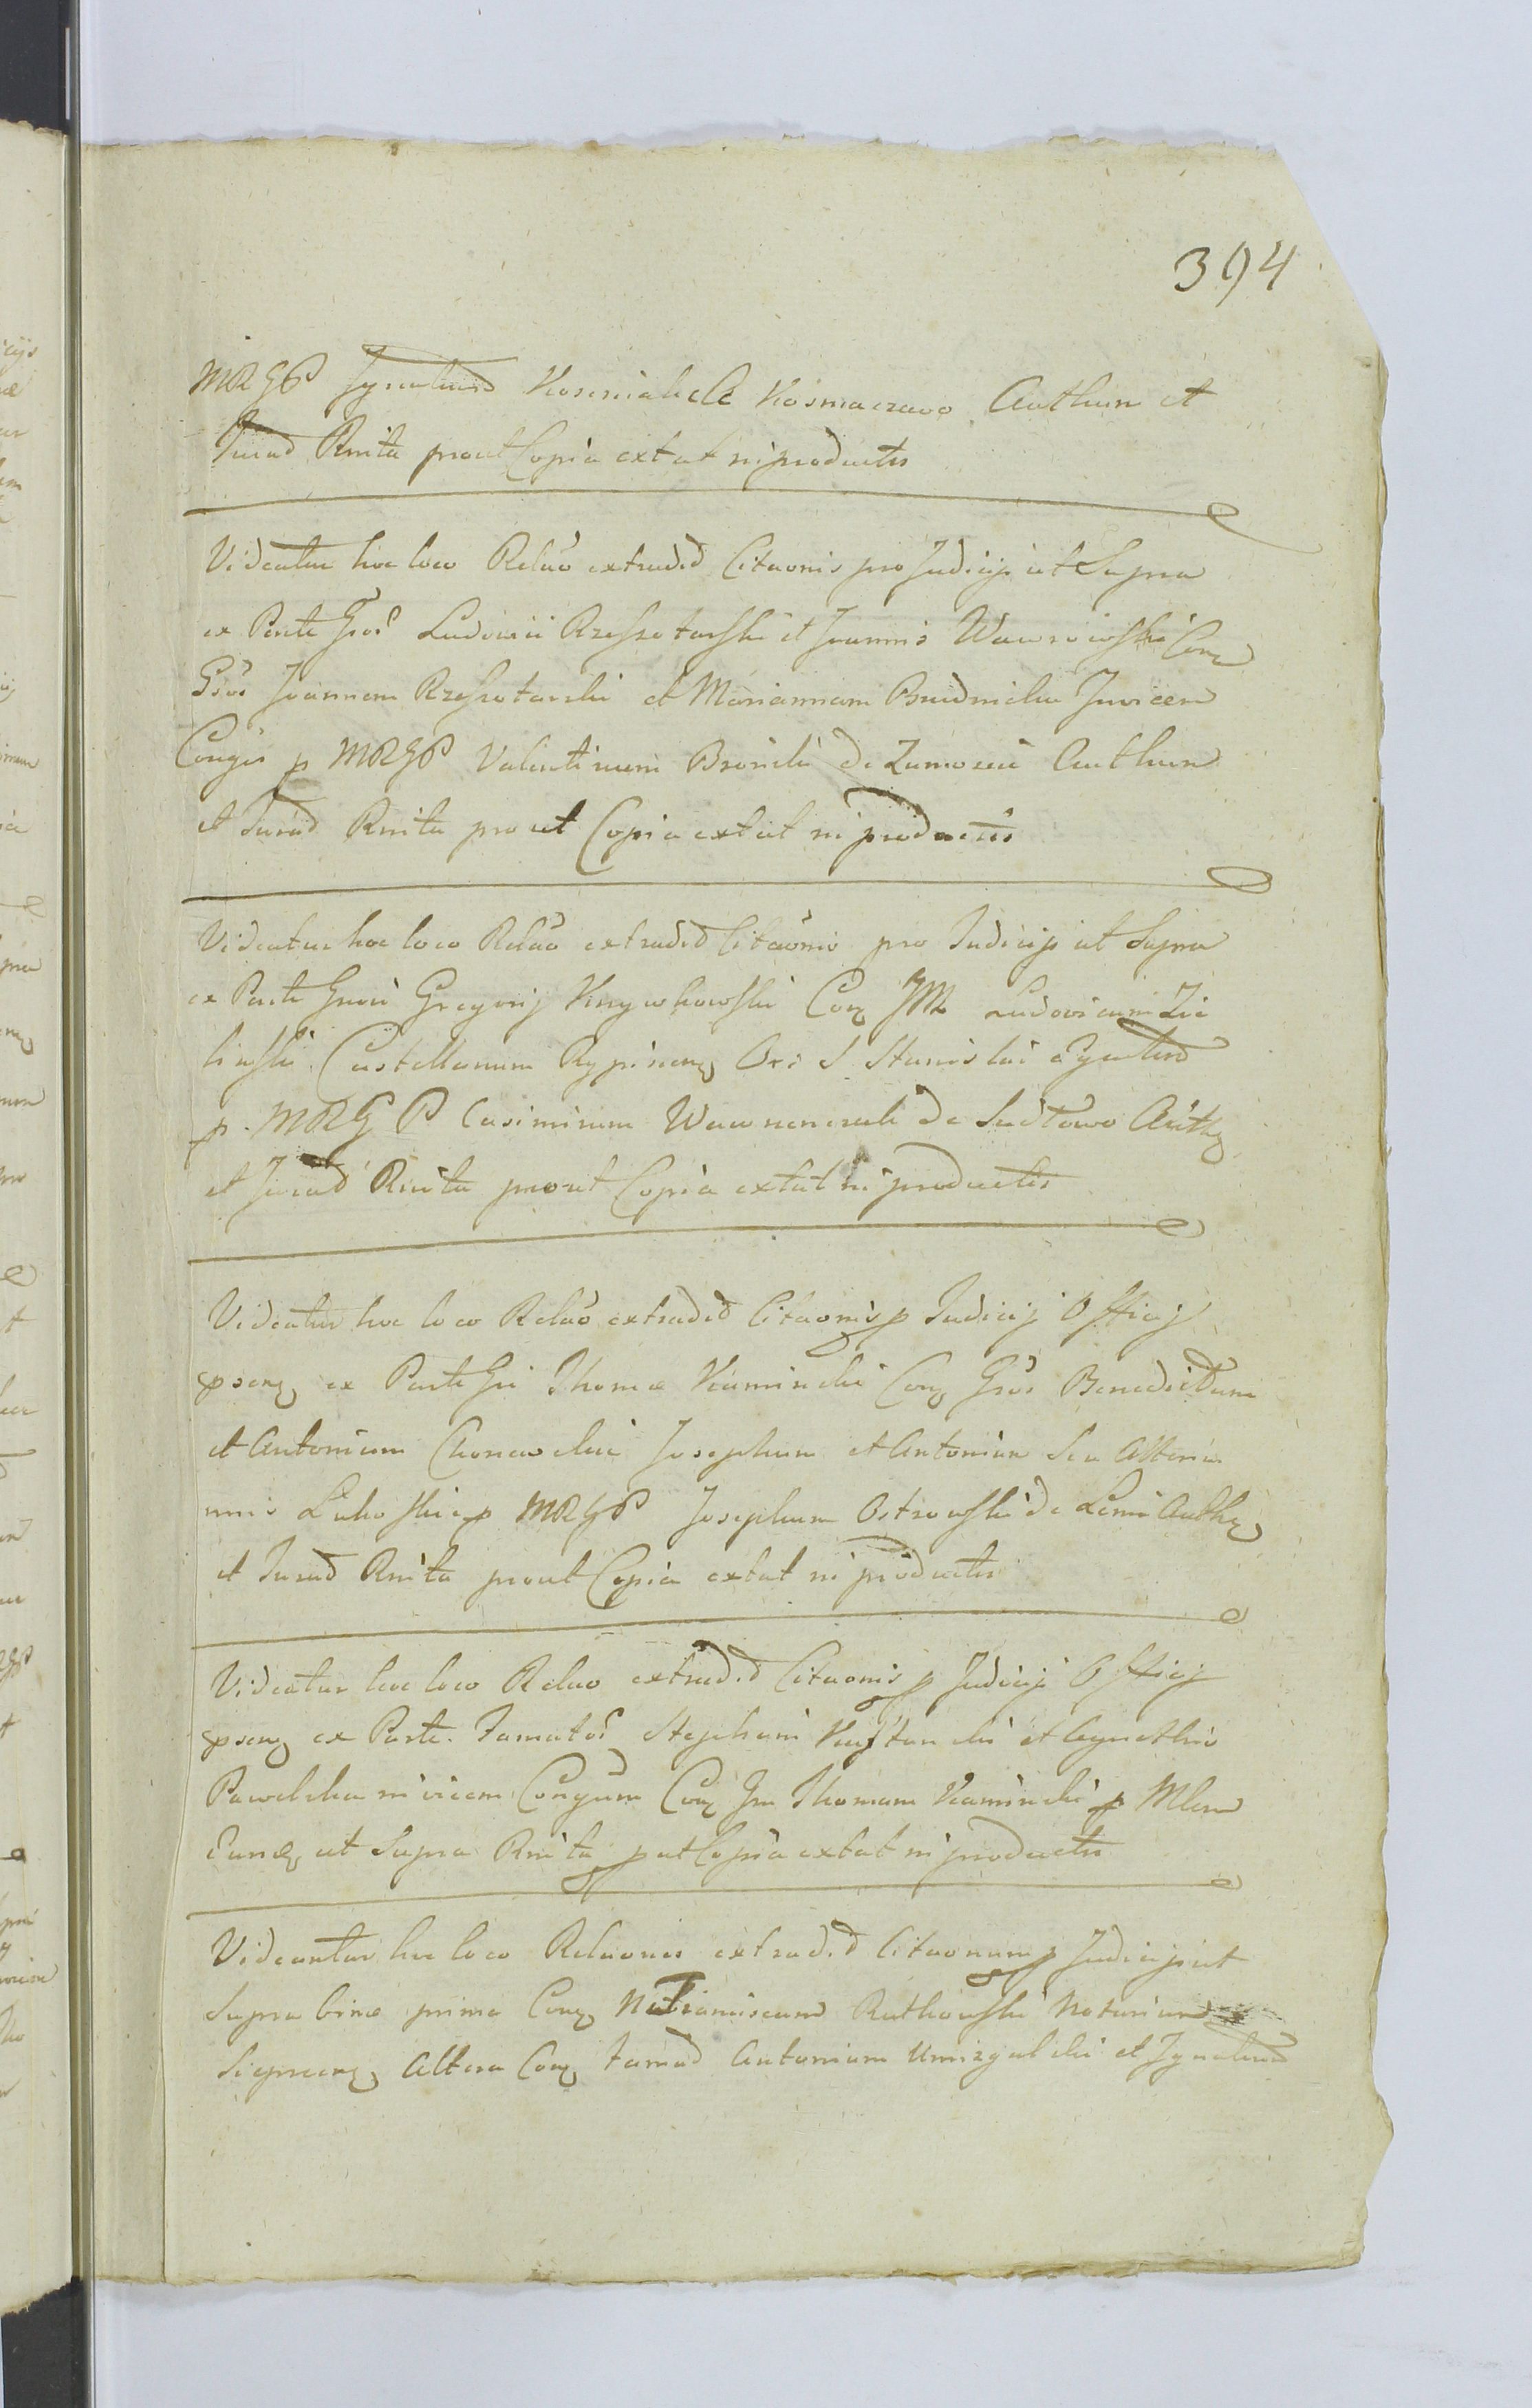 394
MRGP Ignatium Kosmaczewo Authen et
Jurad Rnita prout Copia extat in productis
Videatur hoc loco Relao extradid Citaonis pro Judicijs ut Supra
ex Parte Gsor Ludovici Rzeszotarski et Joannis Wawrowski Conq
Gsos Joannem Rzeszotarski et Mariannam Brudnicka Invicem
Conges p MRGP Valentinum Bronski de Zamoscie Authen
et Jurad Rnita prout Copia extat in productis
Videatur hoc loco Relao extradid Citaonis pro Judicijs ut Supra
ex Parte Gnosi Gregorij Krzywkowski Conq JM Ludovicum Zie
linski Castellanum Rypinenq Ord S Stanislai Equitem
p. MRGP Casimirum de Authq
et Jurad Rnita prout Copia extat in productis
Videatur hoc loco Relao extradid Citaonis p Judicij Officij
psenq ex Parte Gsi Thomæ Kaminski Conq Gsos Benedictum
et Antonium Chonowskie Josephum et Antonium seu alteri
nmis p MRGP Josephum Ostrowski de Authq
et Jurad Rnita prout Copia extat in productis
Videatur hoc loco Relao extradid Citaonis p Judicij Officij
psenq ex Parte Famator Stephani et Agnethis
Pawelska invicem Congum Conq Gsm Thomam Kaminski p Mlem
Eundq ut Supra Rnita put Copia extat in productis
Videantur hoc loco Relaones extradid Citaonum p Judicijs ut
Supra binæ prima Conq Rutkowski Notarium
Sieprcenq Altera Conq Famad Antonium Umizgalski et Ignatium